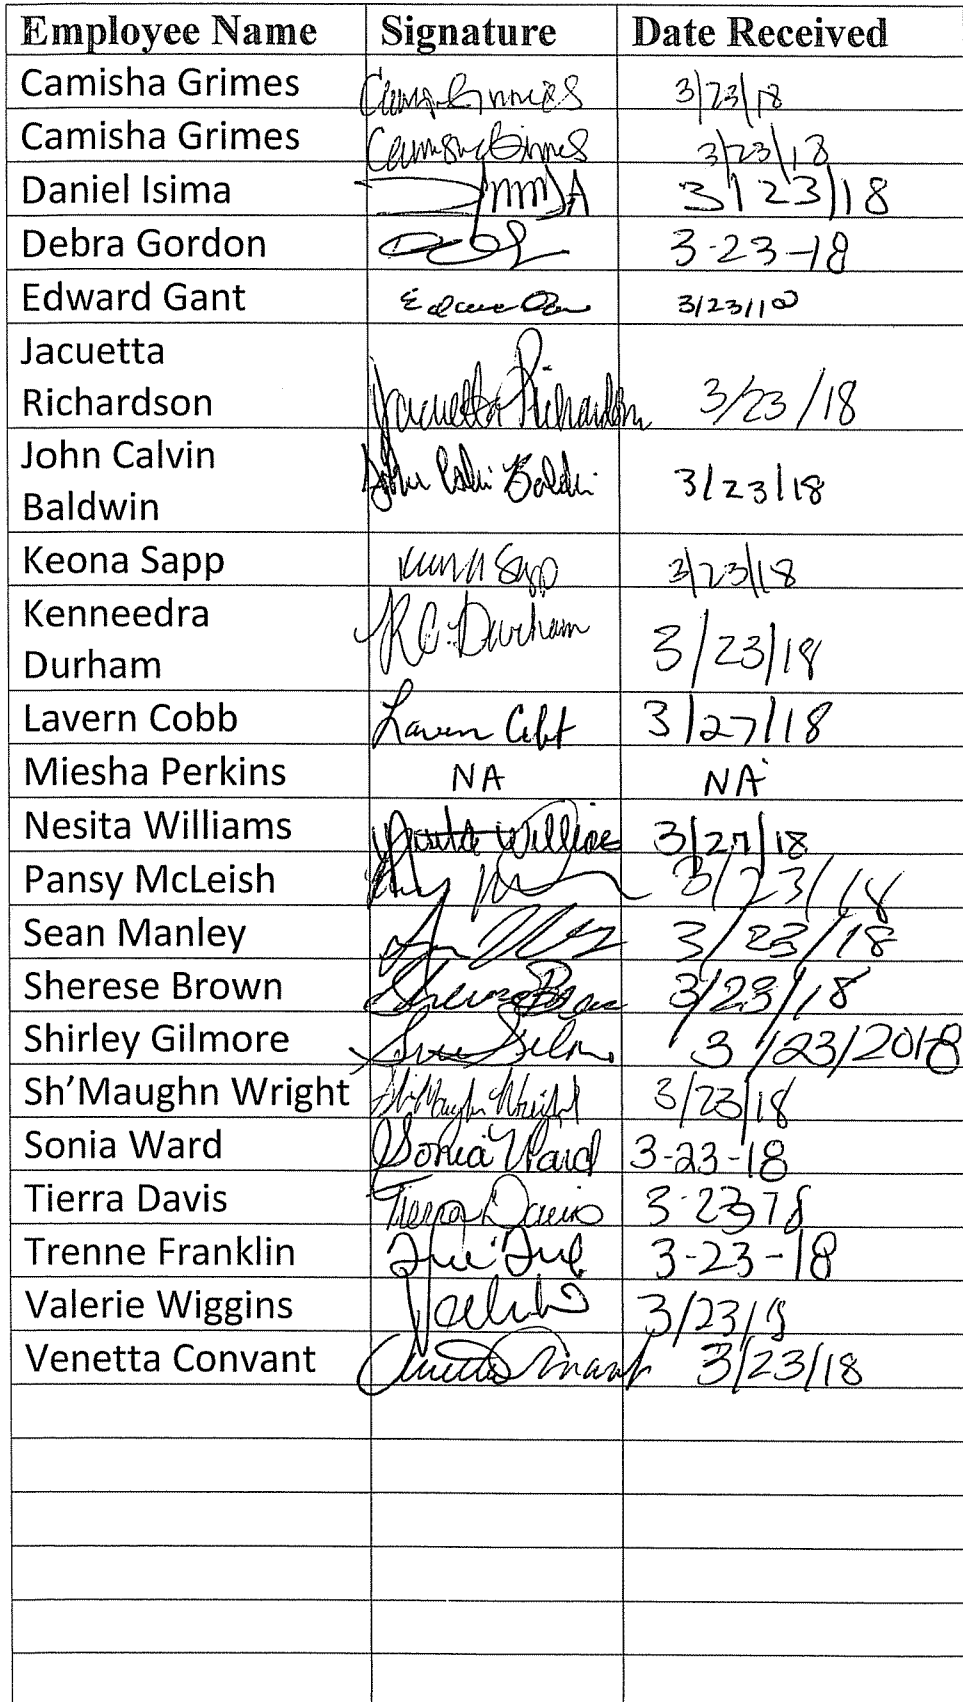 Employee Name Signature Date Received
Camisha Grimes Camisha Grimes 3/23/18
Camisha Grimes Camisha Grimes 3/23/18
Daniel Isima 3/23/18
Debra Gordon 3-23-18
Edward Gant 3/23/18
Jacuetta
Richardson Jacuetta Richardson 3/23/18
John Calvin
Baldwin John Calvin Baldwin 3/23/18
Keona Sapp Keona Sapp 3/23/18
Kenneedra
Durham K.C. Durham 3/23/18
Lavern Cobb Lavern Cobb 3/27/18
Miesha Perkins NA NA
Nesita Williams Nesita Williams 3/27/18
Pansy McLeish 3/23/18
Sean Manley 3/23/18
Sherese Brown Sherese Brown 3/23/18
Shirley Gilmore 3/23/2018
Sh'Maughn Wright Sh'Maughn Wright 3/23/18
Sonia Ward Sonia Ward 3-23-18
Tierra Davis Tierra Davis 3-23-18
Trenne Franklin 3-23-18
Valerie Wiggins 3/23/18
Venetta Convant 3/23/18